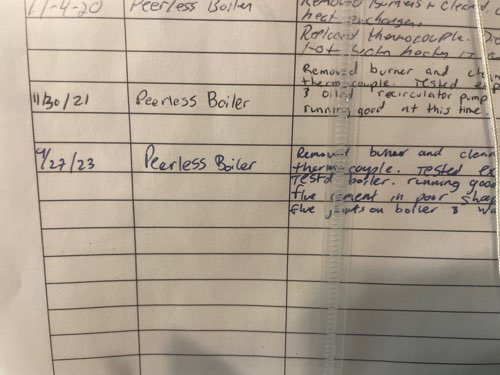 11-4-20 Peerless Boiler Removed Burners + Cleaned
heat exchanger.
Replaced thermocouple.
hot water
Removed burner and
thermocouple. Tested
11/30/21 Peerless Boiler & oiled recirculator pump
running good at this time.
9/27/23 Peerless Boiler Removed burner and clean
thermocouple. Tested ex
Test'd boiler. running good
flue cement in poor shap
flue joints on boiler &